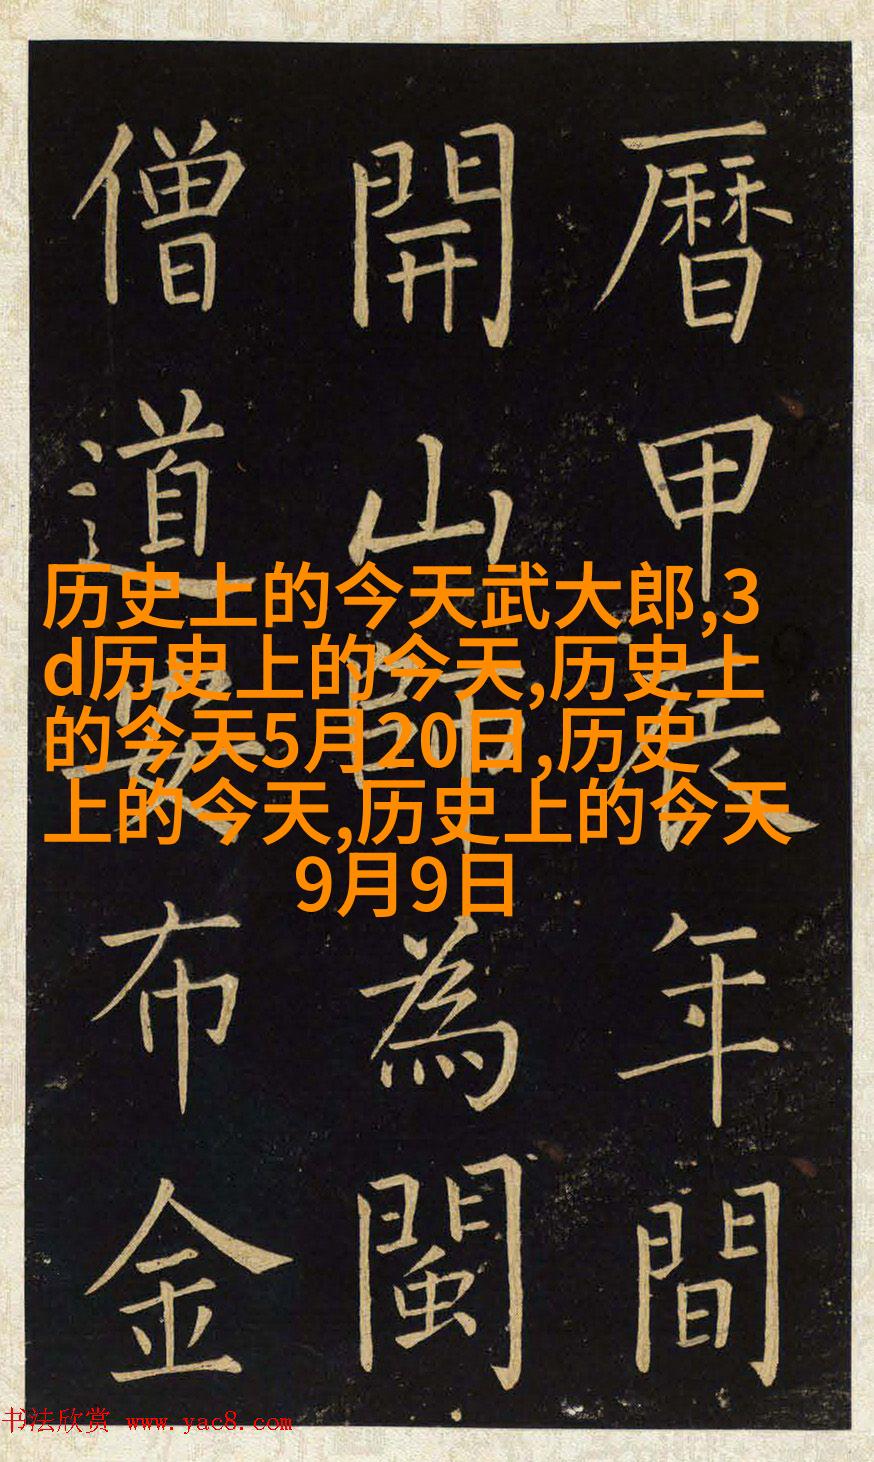 曆甲辰年間
開山師為閩
僧道嬰布金
历史上的今天武大郎,3
d历史上的今天,历史上
的今天5月20日,历史
上的今天,历史上的今天
9月9日
书法欣赏 www.yac8.com